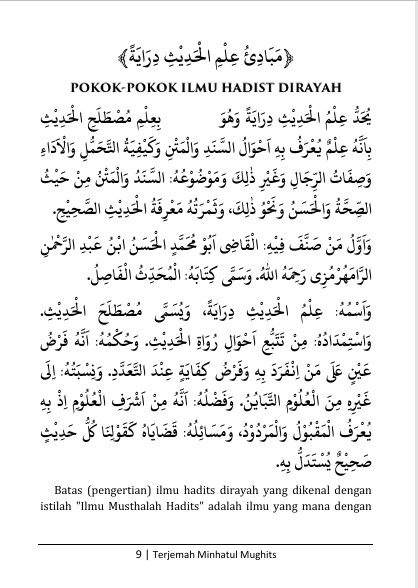 ﴿مَبَادِئُ عِلْمِ الْحَدِيْثِ دِرَايَةً﴾
POKOK-POKOK ILMU HADIST DIRAYAH
يُحَدُّ عِلْمُ الْحَدِيْثِ دِرَايَةً وَهُوَ بِعِلْمِ مُصْطَلَحِ الْحَدِيْثِ
بِأَنَّهُ عِلْمٌ يُعْرَفُ بِهِ اَحْوَالُ السَّنَدِ وَالْمَتْنِ وَكَيْفِيَةُ التَّحَمُّلِ وَالْاَدَاءِ
وَصِفَاتُ الرِّجَالِ وَغَيْرِ ذٰلِكَ وَمَوْضُوْعُهُ: السَّنَدُ وَالْمَتْنُ مِنْ حَيْثُ
الصِّحَّةُ وَالْحَسَنُ وَنَحْوُ ذٰلِكَ، وَثَمْرَتُهُ مَعْرِفَةُ الْحَدِيْثِ الصَّحِيْحِ.
وَاَوَّلُ مَنْ صَنَّفَ فِيْهِ: الْقَاضِى اَبُوْ مُحَمَّدٍ الْحَسَنُ ابْنُ عَبْدِ الرَّحْمٰنِ
الرَّامَهُرْمُزِى رَحِمَهُ اللهُ. وَسَمَّى كِتَابَهُ: الْمُحَدِّثُ الْفَاصِلُ.
وَاسْمُهُ: عِلْمُ الْحَدِيْثِ دِرَايَةً، وَيُسَمَّى مُصْطَلَحَ الْحَدِيْثِ.
وَاسْتِمْدَادُهُ: مِنْ تَتَبُّعِ اَحْوَالِ رُوَاةِ الْحَدِيْثِ. وَحُكْمُهُ: اَنَّهُ فَرْضُ
عَيْنٍ عَلَى مَنْ اِنْفَرَدَ بِهِ وَفَرْضُ كِفَايَةٍ عِنْدَ التَّعَدُّدِ. وَنِسْبَتُهُ: اِلَى
غَيْرِهِ مِنَ الْعُلُوْمِ التَّبَايُنُ. وَفَضْلُهُ: اَنَّهُ مِنْ اَشْرَفِ الْعُلُوْمِ اِذْ بِهِ
يُعْرَفُ الْمَقْبُوْلُ وَالْمَرْدُوْدُ، وَمَسَائِلُهُ: قَضَايَاهُ كَقَوْلِنَا كُلُّ حَدِيْثٍ
صَحِيْحٌ يُسْتَدَلُّ بِهِ.
Batas (pengertian) ilmu hadits dirayah yang dikenal dengan
istilah "Ilmu Musthalah Hadits" adalah ilmu yang mana dengan
9 | Terjemah Minhatul Mughits